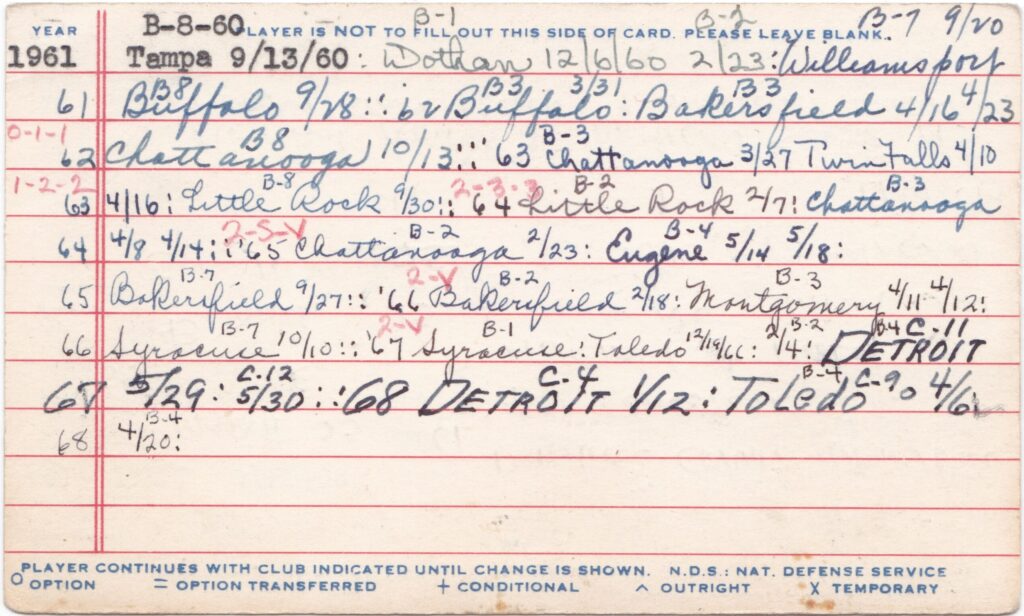 B-8-60 B-1 B-2 B-7 9/20
YEAR PLAYER IS NOT TO FILL OUT THIS SIDE OF CARD. PLEASE LEAVE BLANK.
1961 Tampa 9/13/60: Dothan 12/6/60 2/23: Williamsport
B8 B3 3/31 B3 4
61 Buffalo 9/28::'62 Buffalo: Bakersfield 4/16 /23
0-1-1 B8 B-3
62 Chattanooga 10/13:::'63 Chattanooga 3/27 Twin Falls 4/10
1-2-2 B-8 2-3-3 B-2 B-3
63 4/16: Little Rock 9/30::'64 Little Rock 2/7: Chattanooga
2-5-V B-2 B-4
64 4/8 4/14::'65 Chattanooga 2/23: Eugene 5/14 5/18:
B-7 2-V B-2 B-3
65 Bakersfield 9/27::'66 Bakersfield 2/18: Montgomery 4/11 4/12:
B-7 2-V B-1 B-2 B-4 C-11
66 Syracuse 10/10::'67 Syracuse: Toledo 12/19/66: 2/4: DETROIT
C-12 C-4 B-4 C-90
67 5/29: 5/30::'68 DETROIT 1/12: Toledo 4/6
B-4
68 4/20:
PLAYER CONTINUES WITH CLUB INDICATED UNTIL CHANGE IS SHOWN. N.D.S.: NAT. DEFENSE SERVICE
O OPTION = OPTION TRANSFERRED + CONDITIONAL ^ OUTRIGHT X TEMPORARY